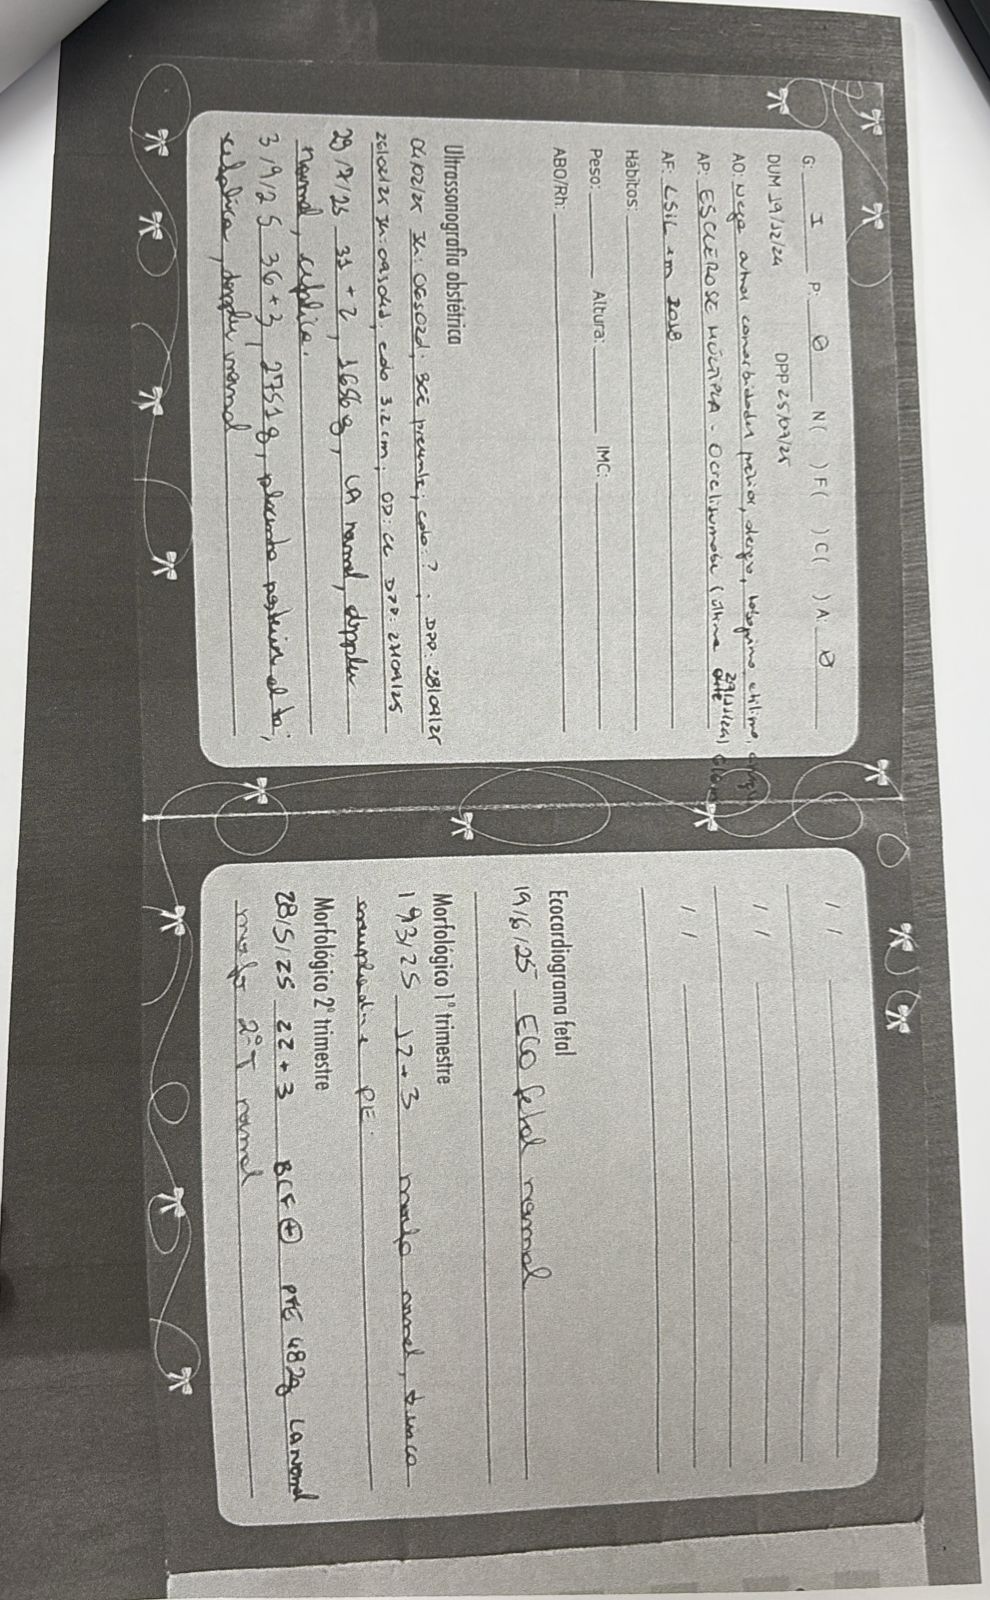 G: I P: Ø N( ) F( ) C( ) A: Ø
DUM 19/12/24 DPP 25/09/25
AO: Nega outras comorbidades prévias, alergia, tabagismo, etilismo,
29/11/24)
AP: ESCLEROSE MÚLTIPLA - Ocrelizumabe (última
AF: LSIL em 2018
Hábitos:
Peso: Altura: IMC:
ABO/Rh:
Ultrassonografia obstétrica
04/02/25 IG: 06s02d; BCE presente; colo: ?. DPP: 28/09/25
26/02/25 IG: 09s04d, colo 3.2cm, OD: CL DPP: 27/09/25
29/7/25 31+2, 1656g, LA normal, doppler
normal, cefálico.
3/9/25 36+3, 2751g, placenta posterior alta,
cefálico, doppler normal
/ /
/ /
/ /
Ecocardiograma fetal
19/6/25 ECO fetal normal
Morfológico 1º trimestre
19/3/25 12+3 morfo normal,
PE.
Morfológico 2º trimestre
28/5/25 22+3 BCF ⊕ PFE 482g LA normal
morfo 2ºT normal